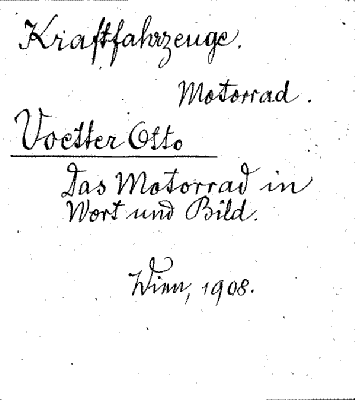 Kraftfahrzeuge.
Motorrad.
Voetter Otto
Das Motorrad in
Wort und Bild.
Wien, 1908.